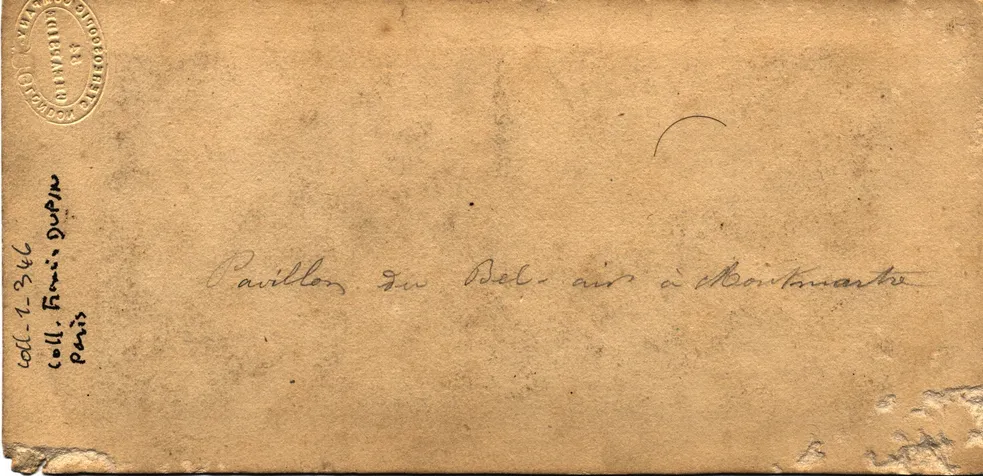 Pavillon du Bel-air à Montmartre
coll-1-346
Coll. Francis DUPIN
Paris
STEREOSCOPIC COMPANY
LONDON